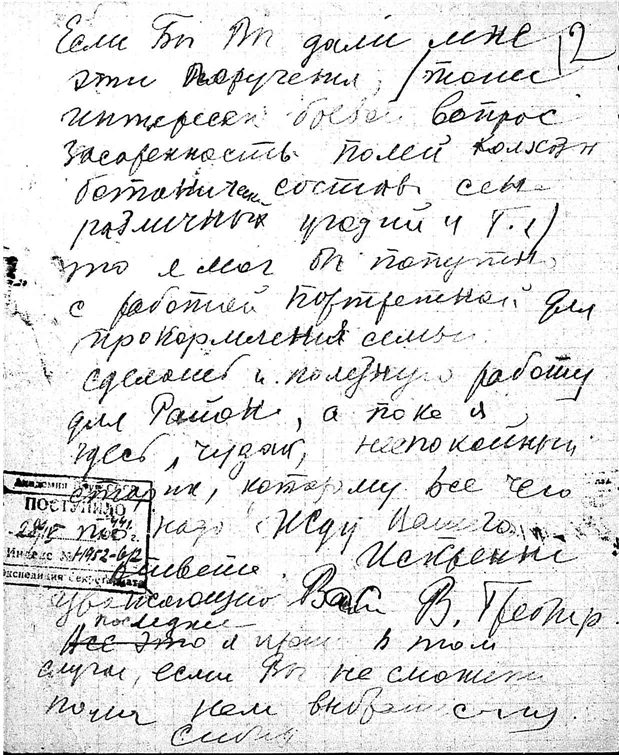 Если Бы Вы дали мне 2
эти поручения, (такие
интересн боевой вопрос
Засоренность полей колхозн
ботаническ состав сена
различных угодий и т. д)
то я мог бы попутно
с работой портретной для
прокормления семьи
сделать и полезную работу
для Района, а пока я
здесь, чудак, неспокойный
старик, которому все чего
надо Жду Вашего
ответа. Искренне
уважающий Вас В.
последнее
Все это я в том
случае, если Вы не сможете
Академия Наук СССР
ПОСТУПИЛО
Индекс №
Экспедиция Секретариата